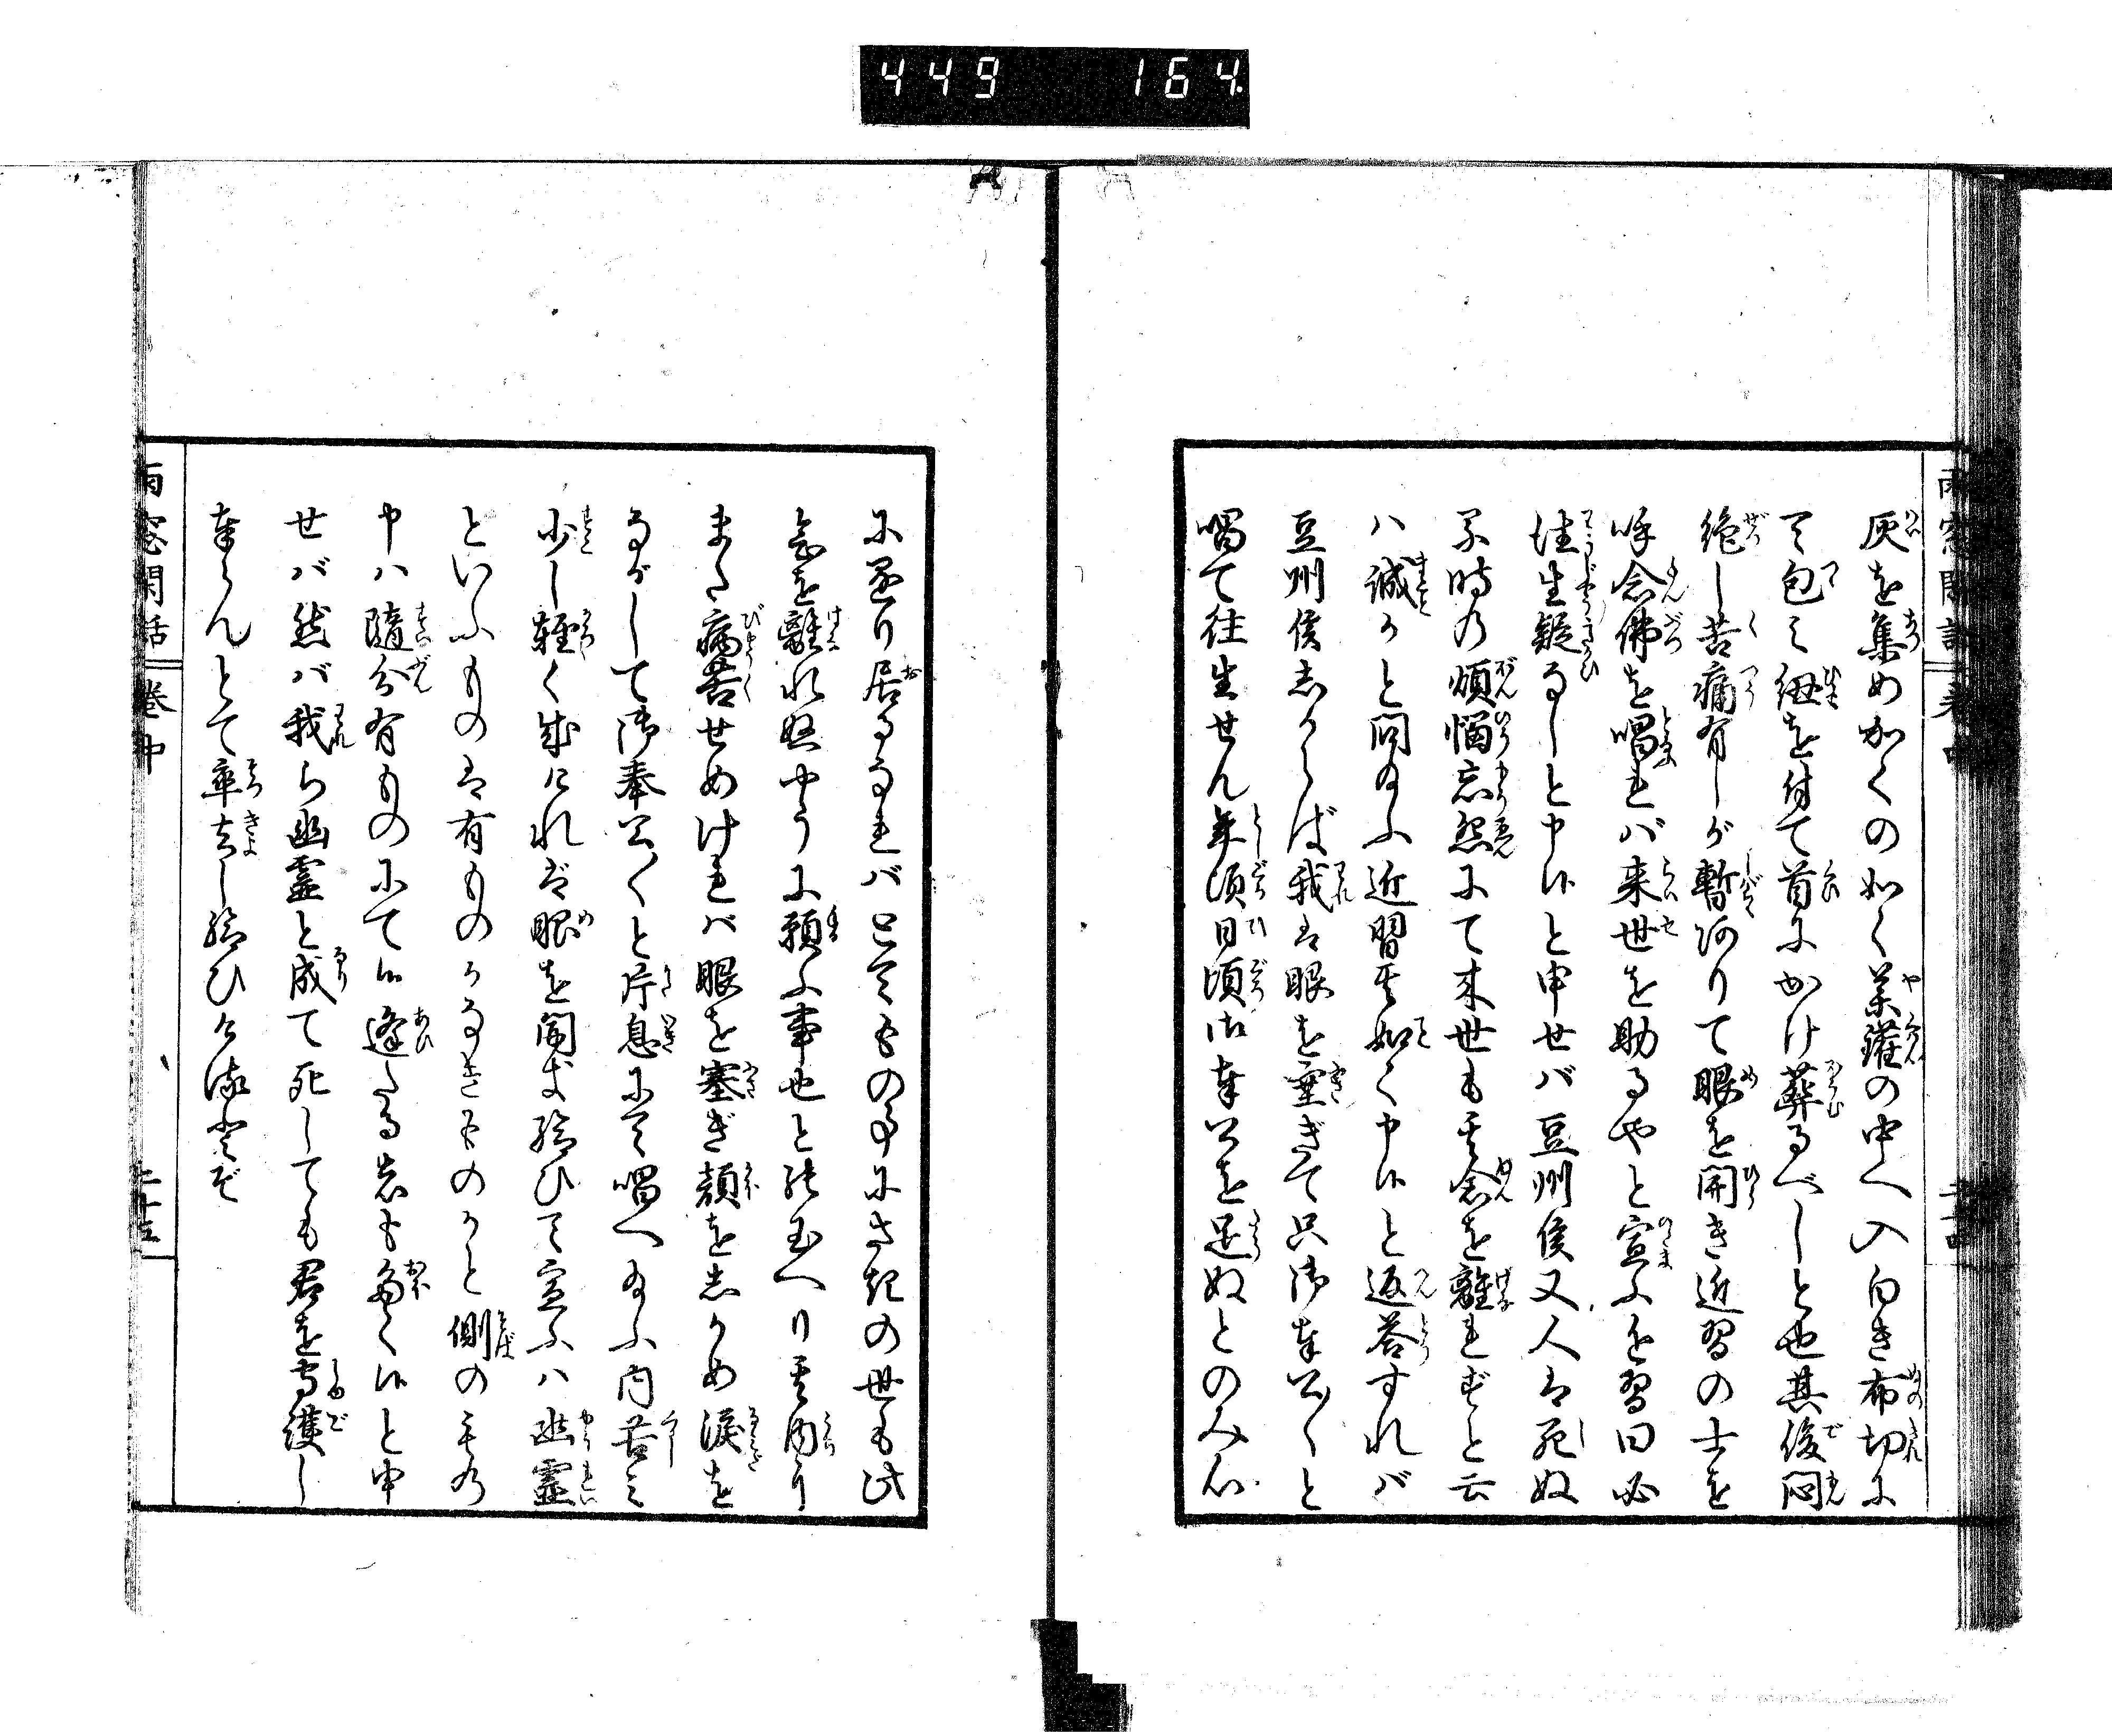 449 164
灰を集め如くの如く薬鑵の中へ入白き布切に
て包み紐を付て首にかけ葬るべしと也其後悶
絶し苦痛有しが暫阿りて眼を開き近習の士を
呼念佛を唱れバ来世を助るやと宣ふ近習曰必
往生疑なしと申けりと申せバ豆州侯又人は死ぬ
る時の煩悩忘怨にて来世も其念を離れずと云
ハ誠かと問給ふ近習其如く申けりと返答すれバ
豆州侯志からば我は眼を塞ぎて只御奉公〱と
唱て往生せん年頃日頃御奉公を足ぬとのみ心
に思り居るなれバせめて
念を離れぬやうに願ふ事也と
また病苦せめけれバ眼を塞ぎ顔を志かめ涙を
ながして御奉公〱と片息にて唱へ給ふ内苦み
少し軽く成けれバ眼を開き給ひて宣ふハ幽霊
といふものは有ものかなきものかと側の者の
申ハ随分有ものにて逢たる者も多く
せバ然バ我ら幽霊と成て死しても君を守護し
奉らんとて卒去し給ひける
雨窓閑話 巻中